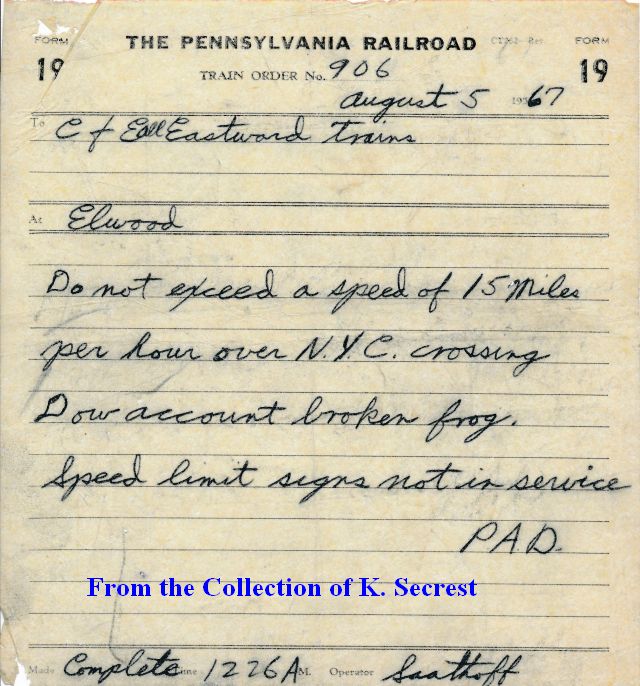 FORM THE PENNSYLVANIA RAILROAD FORM
19 TRAIN ORDER No. 906 19
August 5 1967
To C & E all Eastward trains
At Elwood
Do not exceed a speed of 15 Miles
per hour over N.Y.C. crossing
Dow account broken frog.
Speed limit signs not in service
P.A.D.
From the Collection of K. Secrest
Made Complete Time 1226 A M. Operator Saathoff